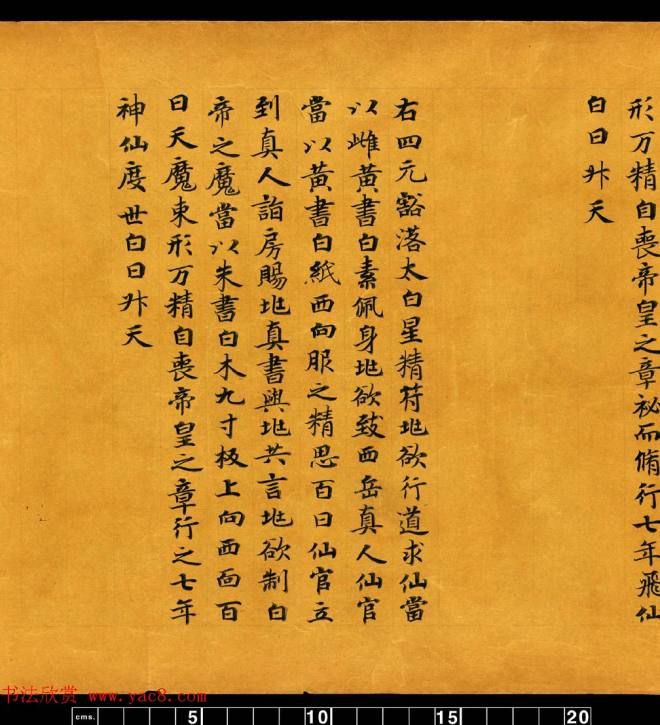 形万精自喪帝皇之章祕而脩行七年飛仙
白日升天
右四元豁落太白星精符地欲行道求仙當
以雌黃書白素佩身地欲致西岳真人仙官
當以黃書白紙西向服之精思百日仙官立
到真人詣房賜地真書與地共言地欲制白
帝之魔當以朱書白木九寸板上向西面百
日天魔束形万精自喪帝皇之章行之七年
神仙度世白日升天
书法欣赏 www.yac8.com
cms. 5 10 15 20